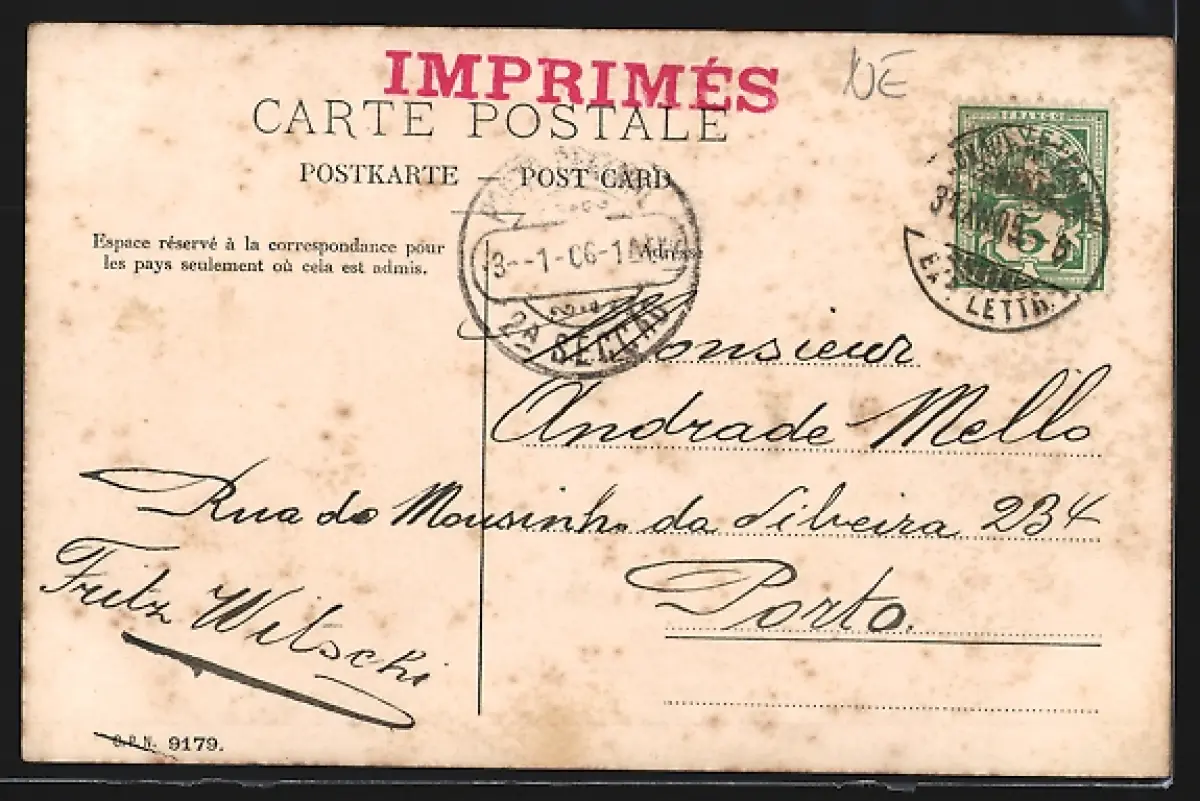 IMPRIMÉS
NE
CARTE POSTALE
POSTKARTE — POST CARD
FRANCO
5
EXP. LETTR.
3--1-06-1
2A SECCAO
Espace réservé à la correspondance pour
les pays seulement où cela est admis.
Adresse
Monsieur
Andrade Mello
Rua do Mousinho da Silveira 234
Porto.
Fritz Wilschi
C.P.N. 9179.